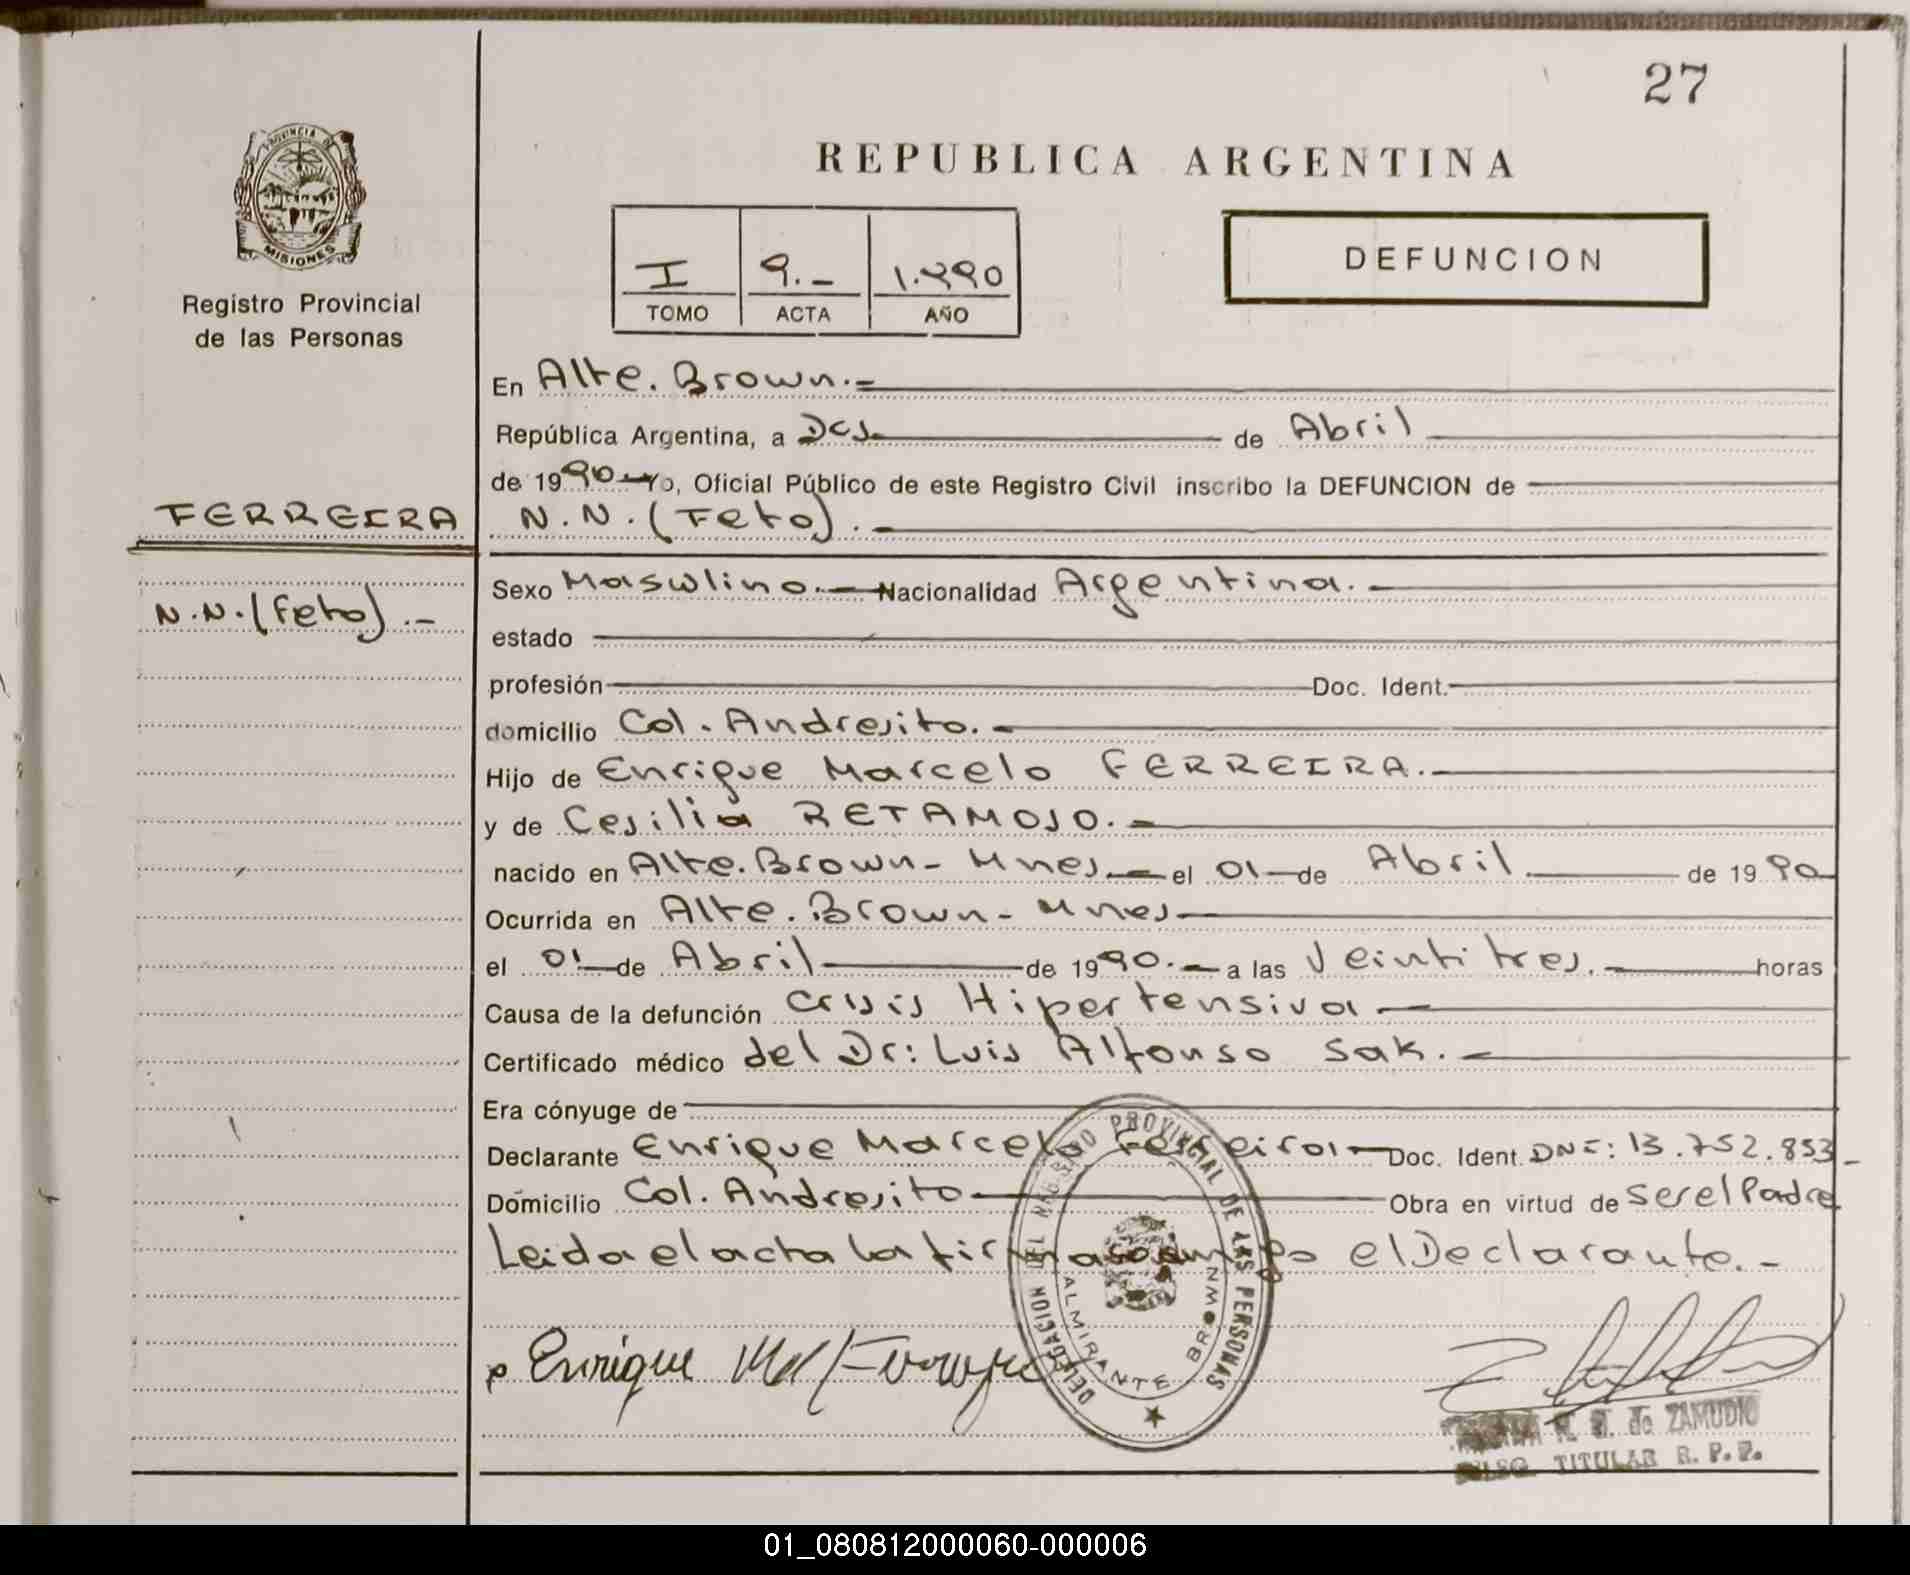 27
REPUBLICA ARGENTINA
PROVINCIA DE
MISIONES
Registro Provincial
de las Personas
I 9.- 1.990
TOMO ACTA AÑO
DEFUNCION
En Alte. Brown.=
República Argentina, a Dos de Abril
de 1990 Yo, Oficial Público de este Registro Civil inscribo la DEFUNCION de
FERREIRA
N.N. (Feto).-
N.N. (Feto).-
Sexo Masculino.- Nacionalidad Argentina.-
estado
profesión Doc. Ident.
domicilio Col. Andresito.-
Hijo de Enrique Marcelo FERREIRA.-
y de Cesilia RETAMOSO.-
nacido en Alte. Brown- Mnes.- el 01 de Abril de 1990
Ocurrida en Alte. Brown- Mnes
el 01 de Abril de 1990.- a las Veintitres.- horas
Causa de la defunción Crisis Hipertensiva
Certificado médico del Dr: Luis Alfonso Sak.-
Era cónyuge de
Declarante Enrique Marcelo Ferreira Doc. Ident. DNI: 13.752.853-
Domicilio Col. Andresito Obra en virtud de ser el Padre
Leida el acta la firma conmigo el Declarante.-
DELEGACION DEL REGISTRO PROVINCIAL DE LAS PERSONAS
ALMIRANTE BROWN
Enrique
de ZAMUDIO
TITULAR R. P. P.
01_080812000060-000006